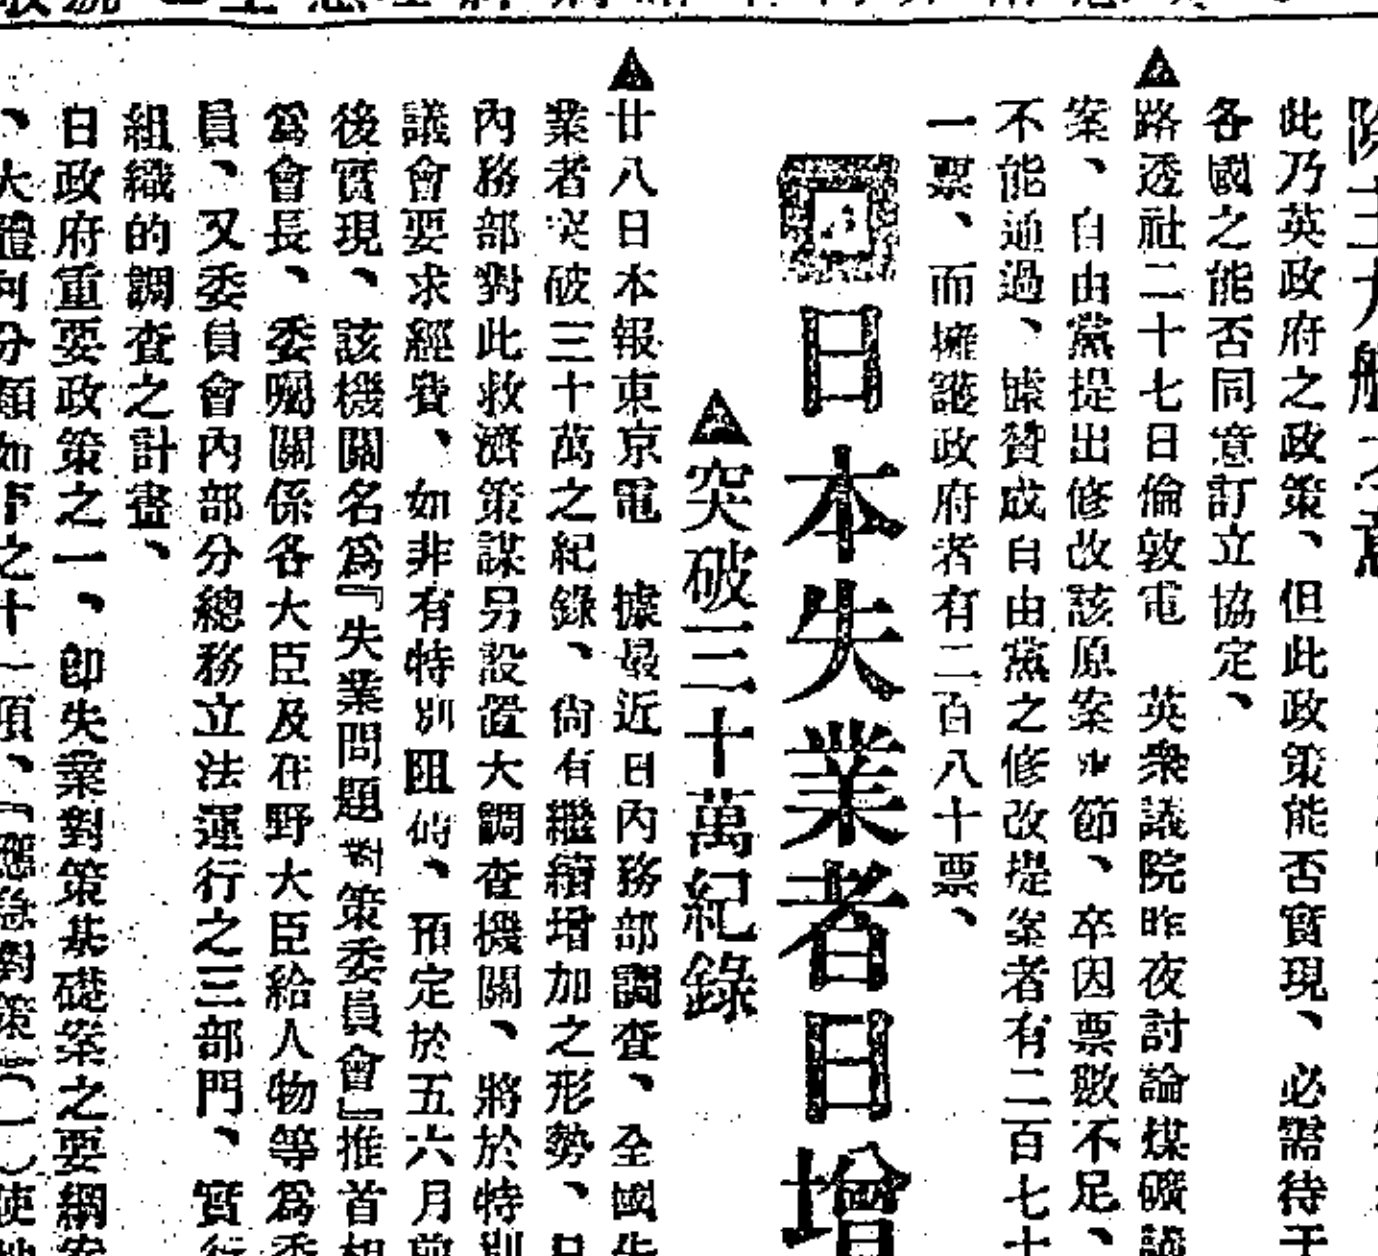 此乃英政府之政策、但此政策能否實現、必需待于
各國之能否同意訂立協定、
▲路透社二十七日倫敦電　英衆議院昨夜討論煤礦議
案、自由黨提出修改該原案 節、卒因票數不足、
不能通過、據贊成自由黨之修改提案者有二百七十
一票、而擁護政府者有二百八十票、
日本失業者日增
▲突破三十萬紀錄
▲廿八日本報東京電　據最近日內務部調查、全國失
業者突破三十萬之紀錄、尙有繼續增加之形勢、日
內務部對此救濟策謀另設置大調查機關、將於特別
議會要求經費、如非有特別阻碍、預定於五六月前
後實現、該機關名爲『失業問題對策委員會』推首相
爲會長、委囑關係各大臣及在野大臣給人物等爲委
員、又委員會內部分總務立法運行之三部門、實行
組織的調查之計畫、
日政府重要政策之一、卽失業對策基礎案之要綱案
、大體可分類如下之十一項、『應急對策（一）使地